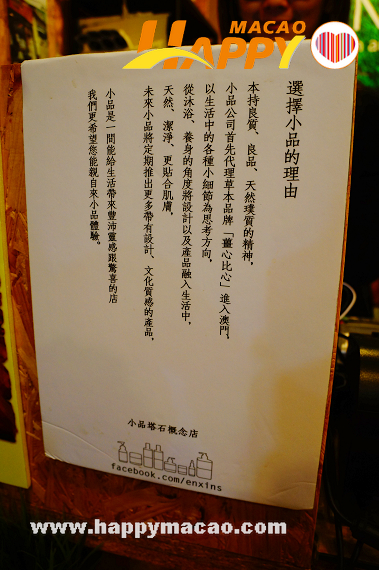 MACAO
HAPPY
選擇小品的理由
本持良質、良品、天然璞質的精神，
小品公司首先代理草本品牌「薑心比心」進入澳門，
以生活中的各種小細節為思考方向，
從沐浴、養身的角度將設計以及產品融入生活中，
天然、潔淨、更貼合肌膚，
未來小品將定期推出更多帶有設計、文化質感的產品，
小品是一間能給生活帶來豐沛靈感跟驚喜的店
我們更希望您能親自來小品體驗。
小品塔石概念店
facebook.com/enxins
www.happymacao.com